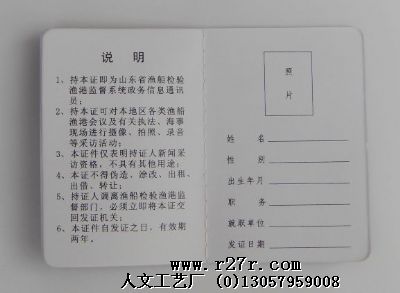 说 明
1、持本证即为山东省渔船检验
渔港监督系统政务信息通讯
员;
2、持本证可对本地区各类渔船
渔港会议及有关执法、海事
现场进行摄像、拍照、录音
等采访活动;
3、本证件仅表明持证人新闻采
访资格,不具有其他用途;
4、本证不得伪造、涂改、出租、
出借、转让;
5、持证人调离渔船检验渔港监
督部门,必须立即将本证交
回发证机关;
6、本证件自发证之日,有效期
两年。
照
片
姓 名
性 别
出生年月
职 务
就职单位
发证日期
www.r27r.com
人文工艺厂 (0)13057959008